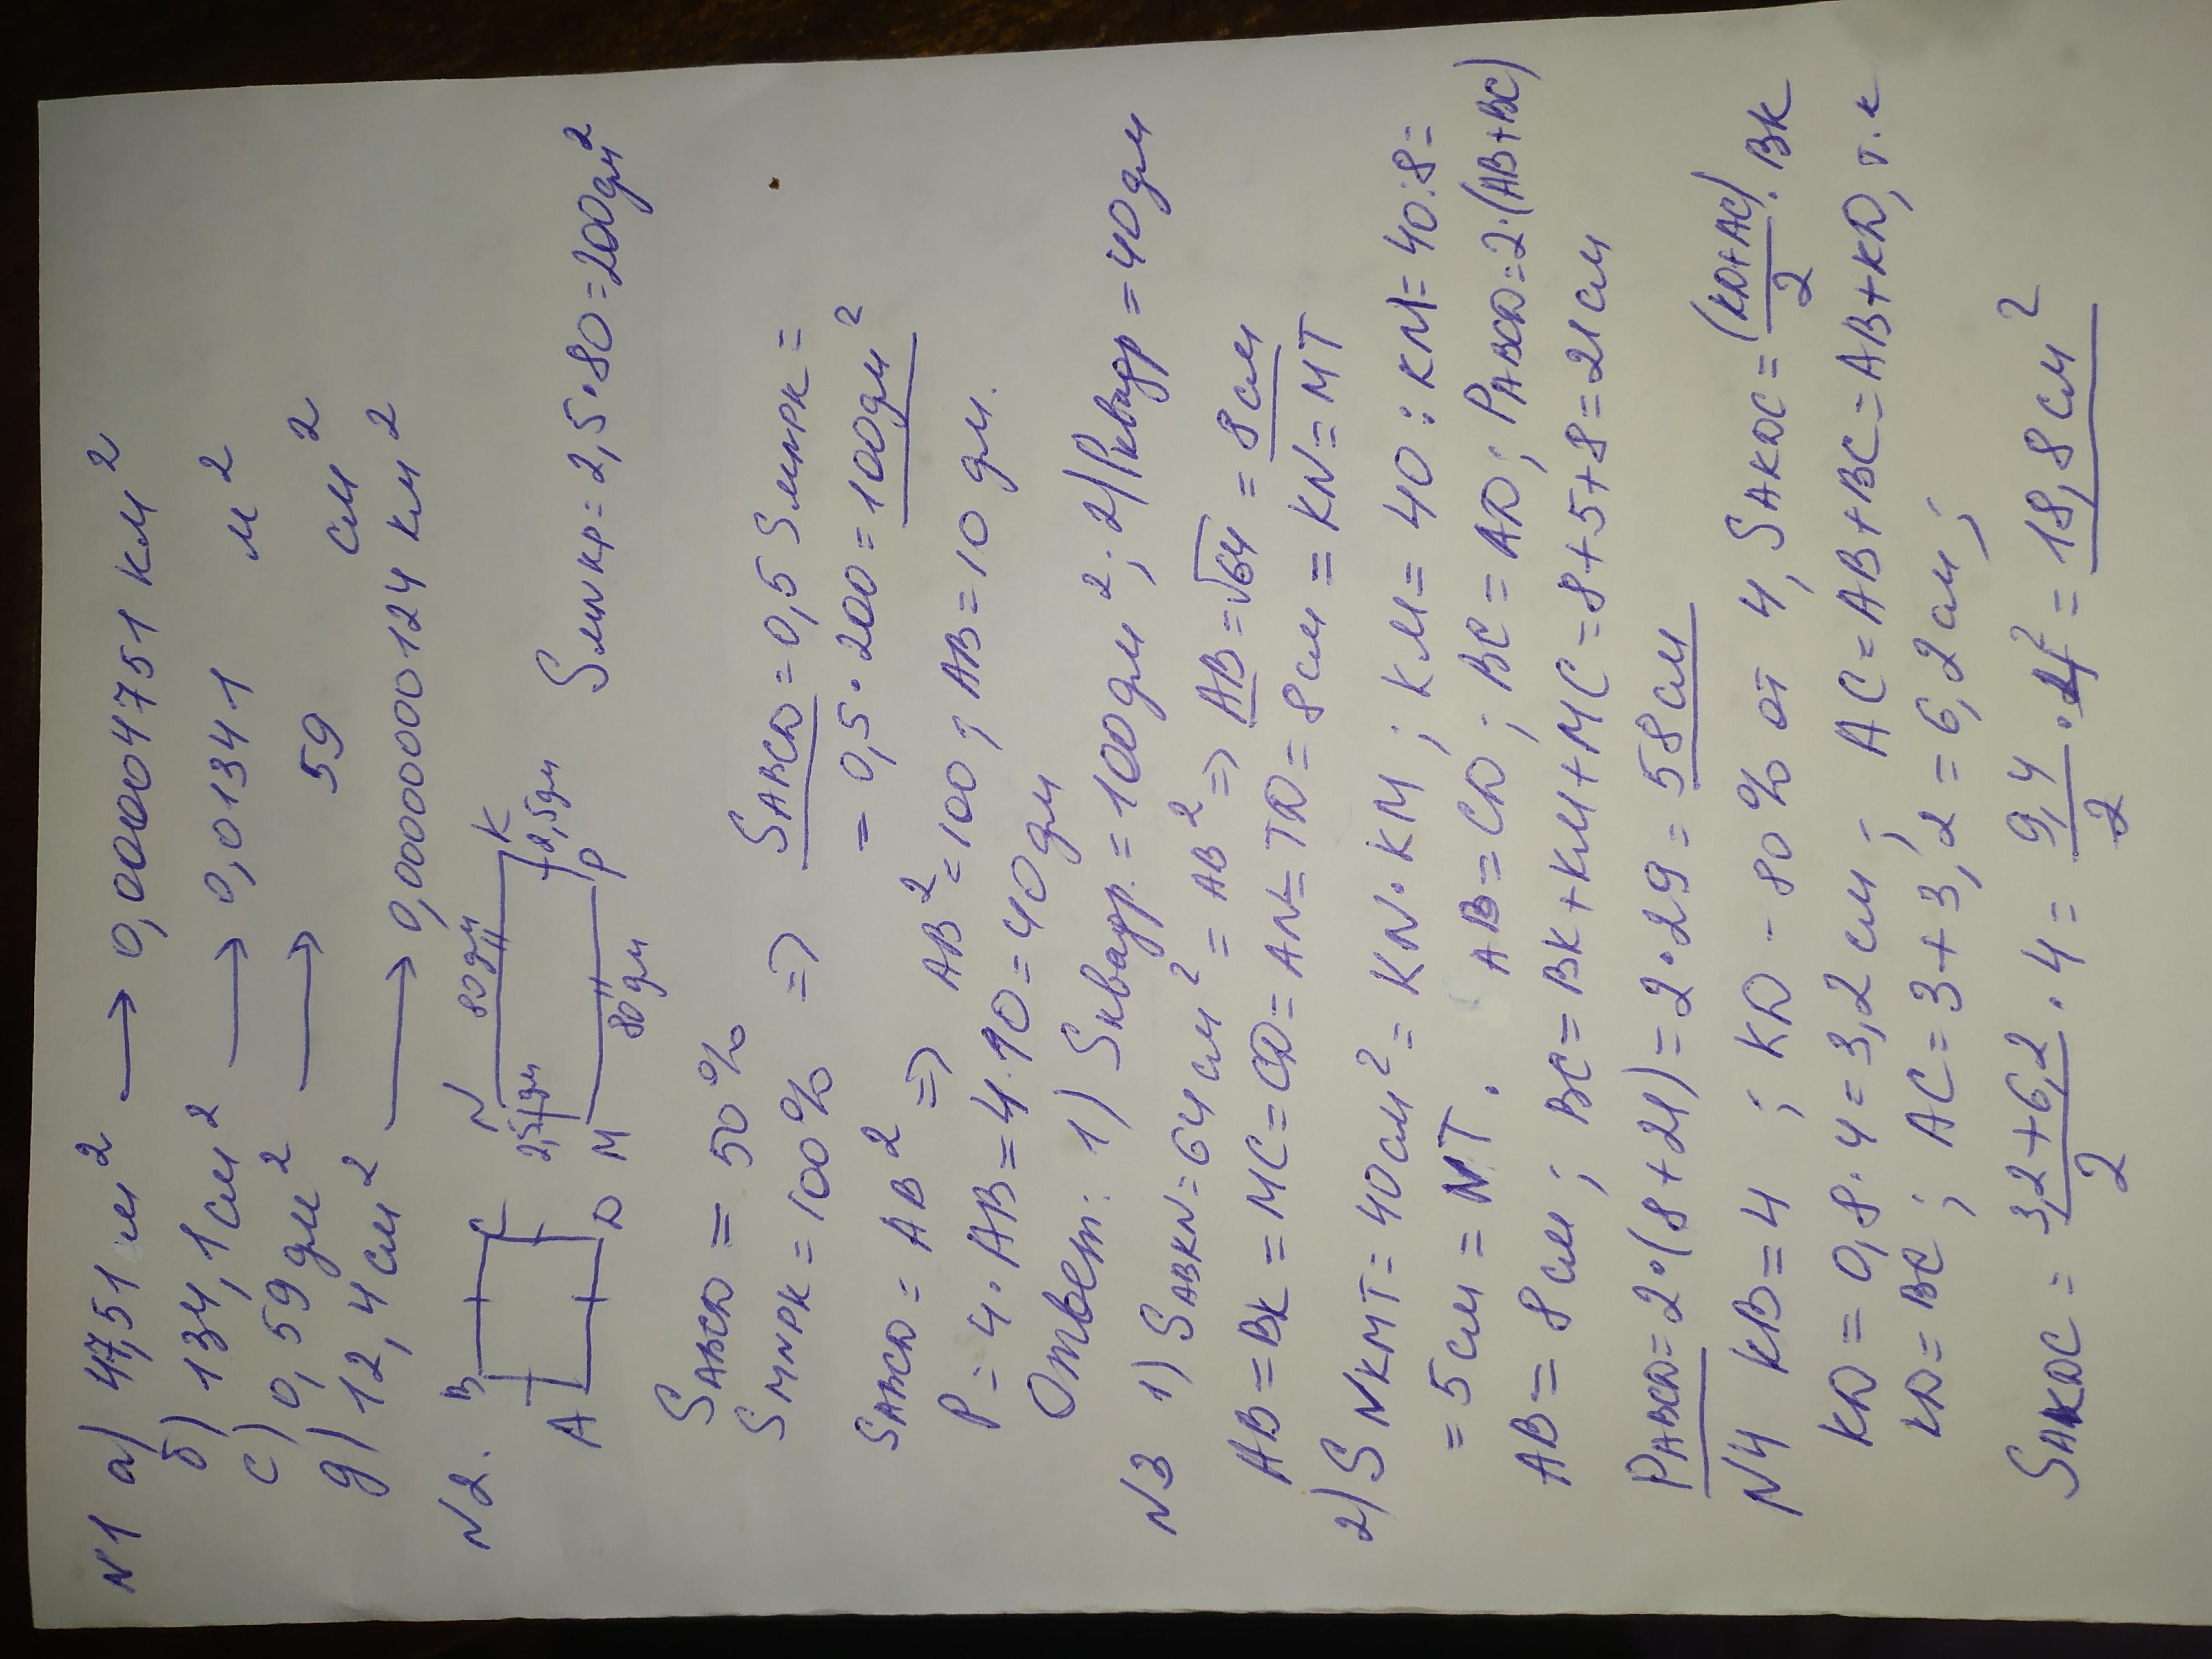 N1 а) 47,51 м² → 0,00004751 км²
б) 134,1 см² → 0,01341 м²
с) 0,59 дм² → 59 см²
д) 12,4 см² → 0,00000000124 км²
N2. B C N 80дм K
2,5дм 2,5дм SмNкр = 2,5·80=200дм²
A D M 80дм P
SABCD = 50%
SMNPK = 100% => SABCD = 0,5 SMNPK =
= 0,5·200 = 100дм²
SABCD = AB² => AB² = 100; AB = 10 дм.
P = 4·AB = 4·10 = 40дм
Ответ: 1) Sквадр. = 100дм²; 2) Pквадр = 40дм
N3 1) SABKN = 64см² = AB² => AB = √64 = 8см
AB = BK = MC = CD = AN = TD = 8см = KN = MT
2) SNKMT = 40см² = KN·KM; KM = 40 : KM = 40:8 =
= 5см = NT. AB = CD; BC = AD; PABCD = 2·(AB+BC)
AB = 8см; BC = BK+KM+MC = 8+5+8 = 21см
PABCD = 2·(8+21) = 2·29 = 58см
N4 KB = 4; KD - 80% от 4, SAKDC = (KD+AC)/2 · BK
KD = 0,8·4 = 3,2см; AC = AB+BC = AB+KD, т.к
KD = BC; AC = 3+3,2 = 6,2см;
SAKDC = 3,2+6,2/2 · 4 = 9,4/2 · 4² = 18,8см²